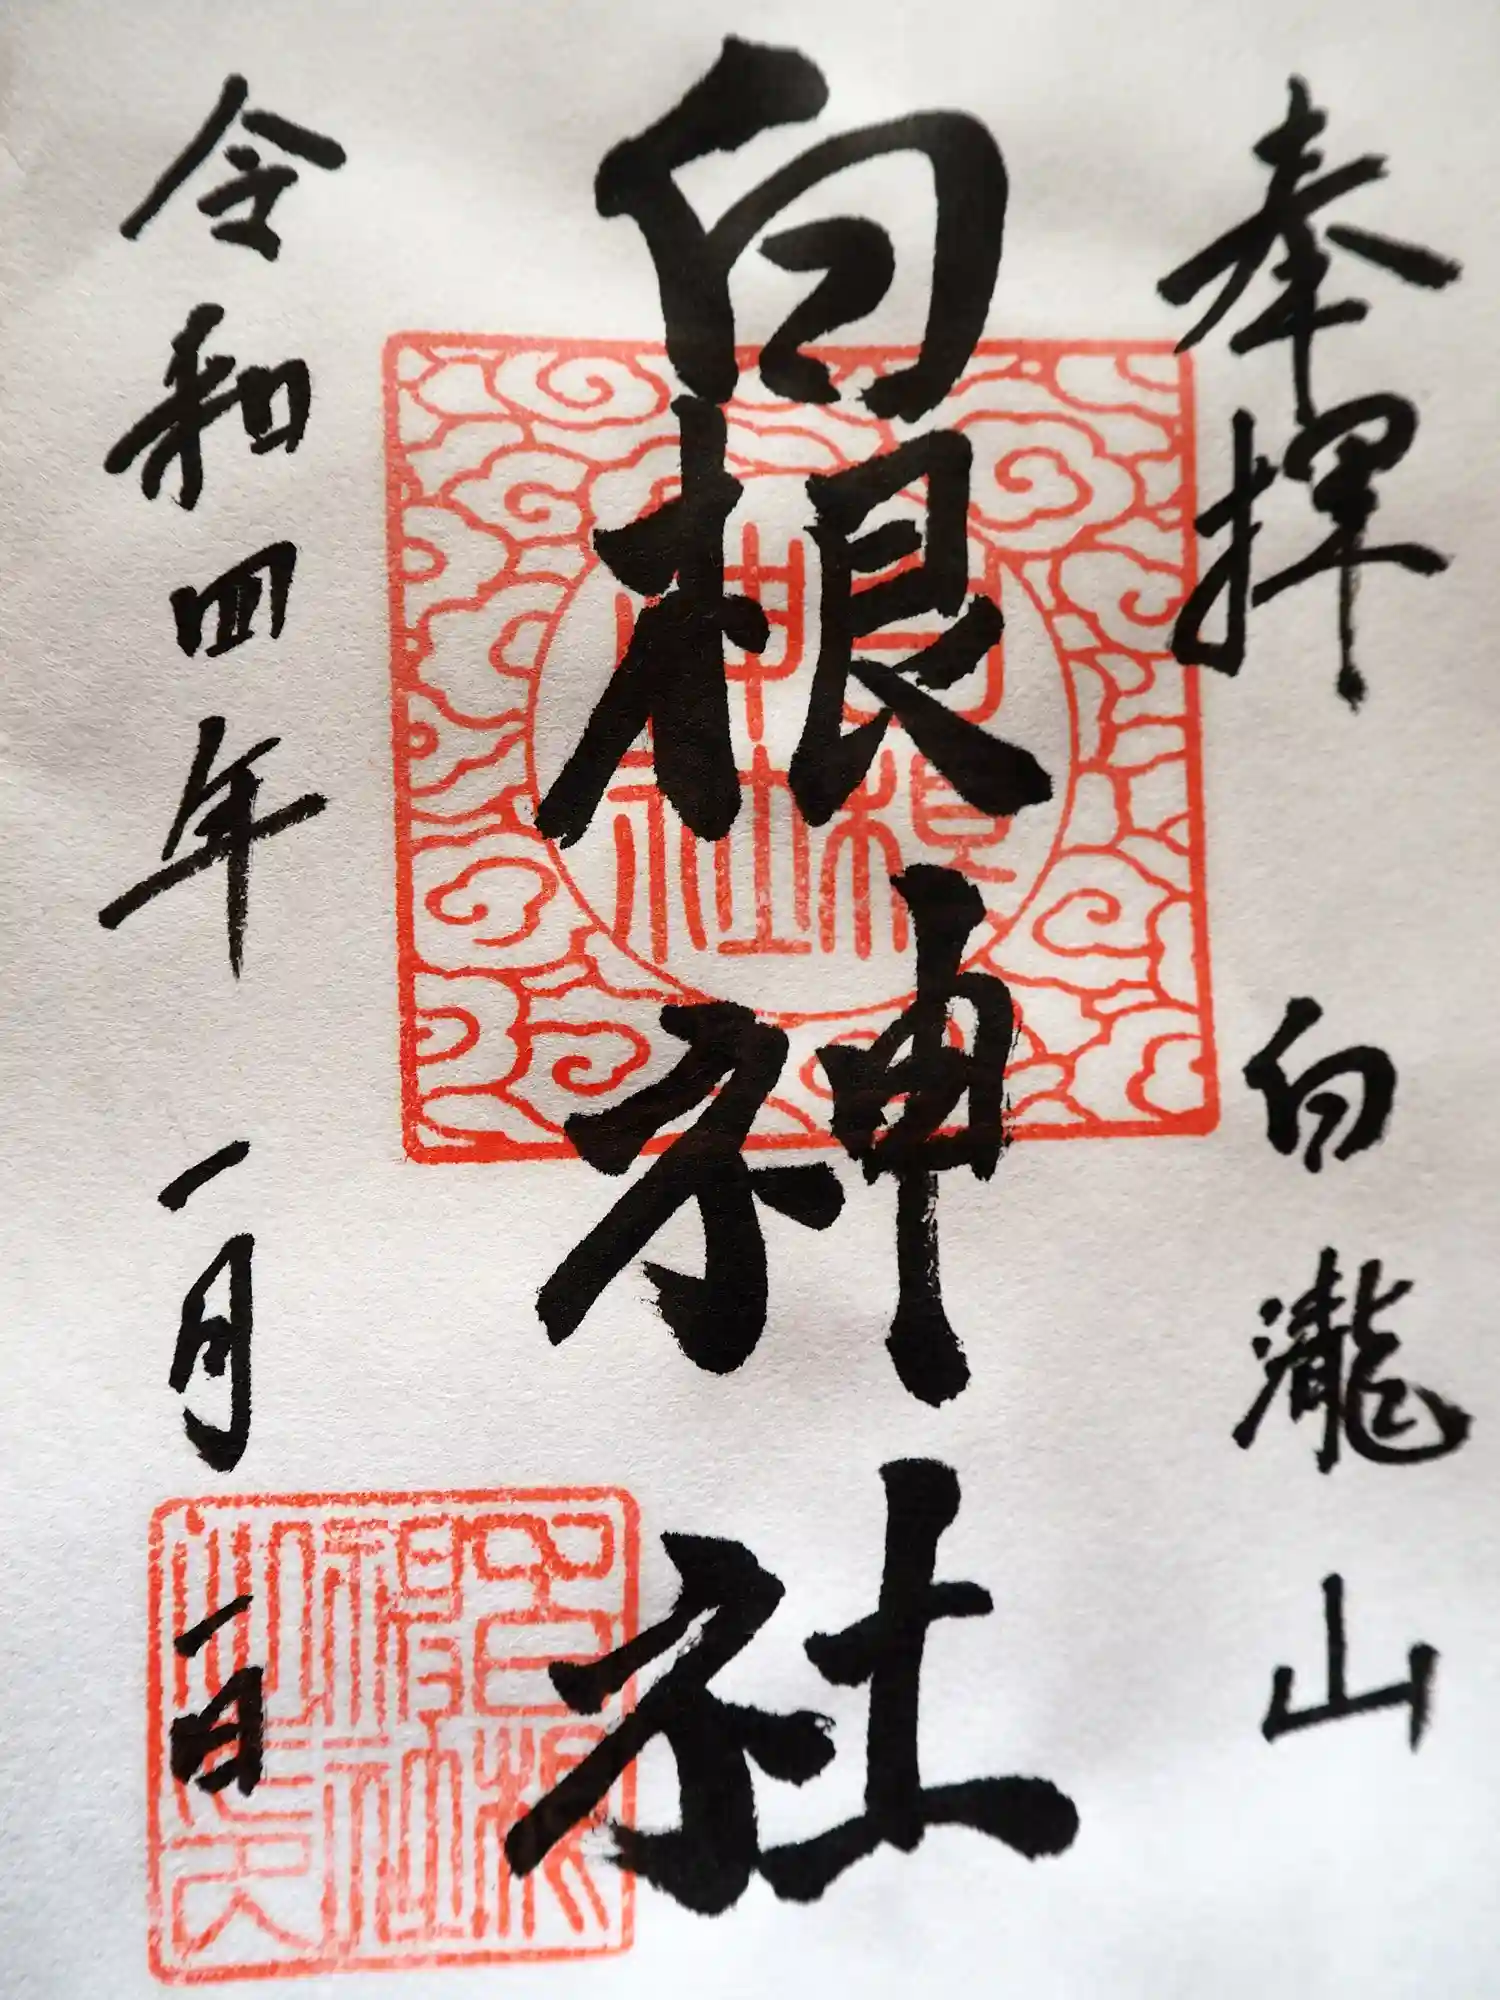 奉拝 白瀧山
白根神社
令和四年一月一日
白根神社